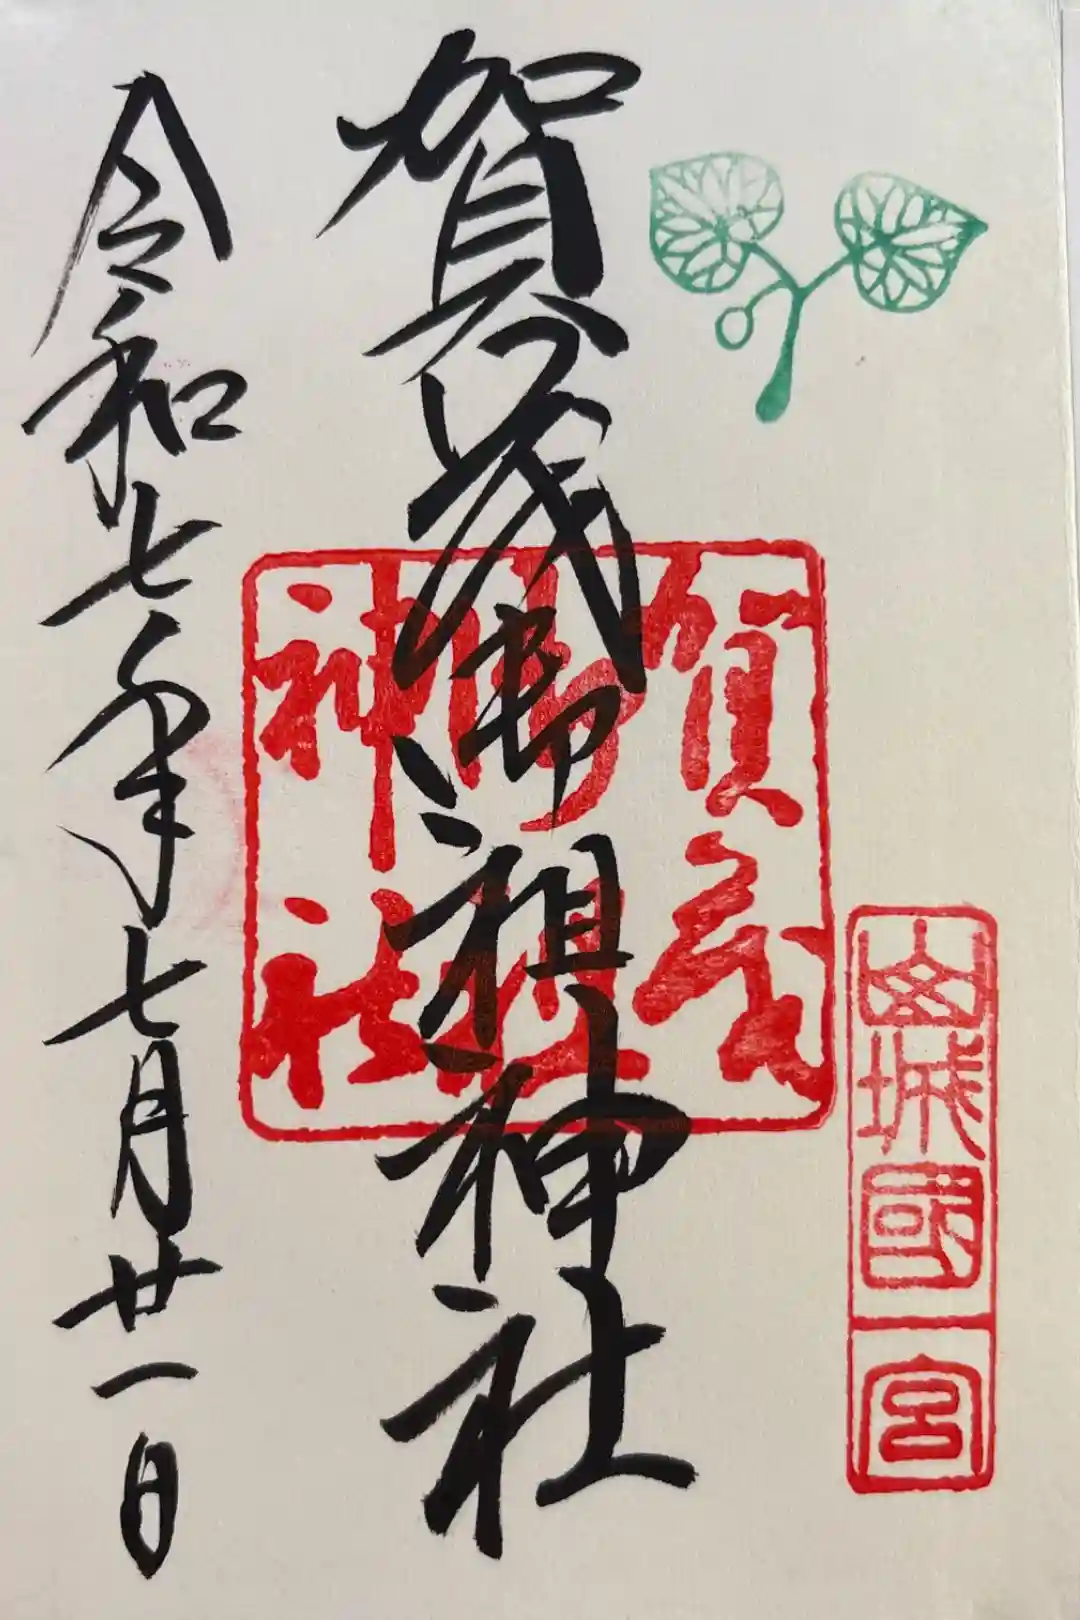 山城國一宮
賀茂御祖神社
賀茂
御祖
神社
令和七年七月廿一日